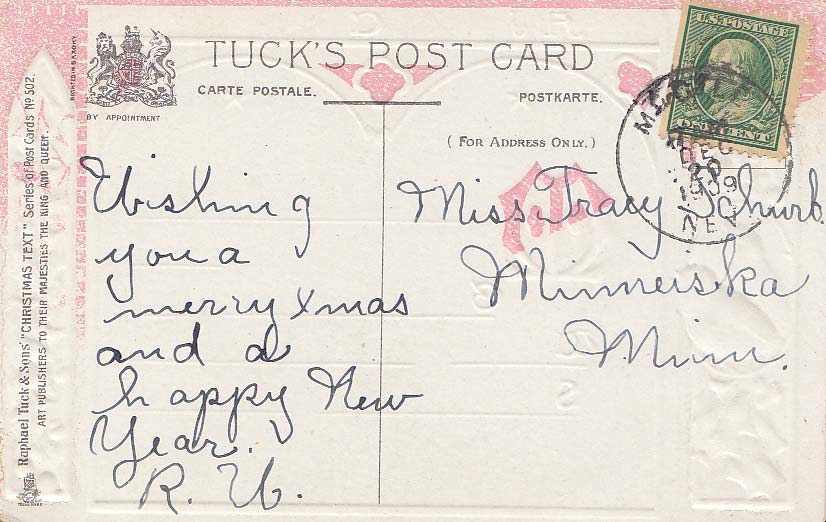 TUCK'S POST CARD
CARTE POSTALE.
POSTKARTE.
BY APPOINTMENT
(FOR ADDRESS ONLY.)
PRINTED IN SAXONY
Raphael Tuck & Sons' "CHRISTMAS TEXT" Series of Post Cards No 502.
ART PUBLISHERS TO THEIR MAJESTIES THE KING AND QUEEN.
U.S. POSTAGE
ONE CENT
DEC
20
1909
NEV
Wishing
you a
merry xmas
and a
happy New
Year.
R. U.
Miss Tracy Schurb
Minneiska
Minn.